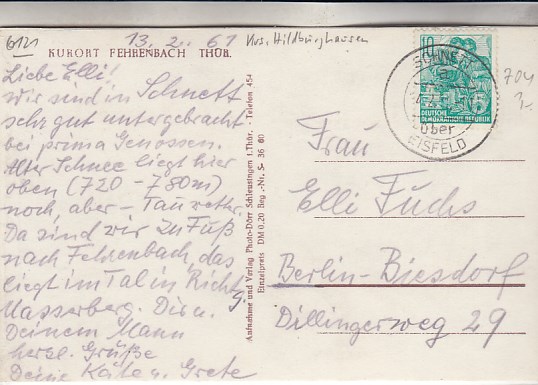 6121
13. 2. 61
Krs. Hildburghausen
KURORT FEHRENBACH THÜR.
Liebe Elli!
Wir sind in Schnett
sehr gut untergebracht
bei prima Genossen.
Alter Schnee liegt hier
oben (720 - 780m)
noch, aber - Tauwetter.
Da sind wir zu Fuß
nach Fehrenbach, das
liegt im Tal in Richtg
Masserberg. Dir u.
Deinem Mann
herzl. Grüße
Deine Käte u. Grete
Aufnahme und Verlag Photo-Dörr Schleusingen i. Thür. - Telefon 454
Einzelpreis DM 0,20 Beg.-Nr. S- 36 60
10
5
DEUTSCHE
DEMOKRATISCHE REPUBLIK
SCHNETT
über
EISFELD
704
Frau
Elli Fuchs
Berlin-Biesdorf
Dillingerweg 29